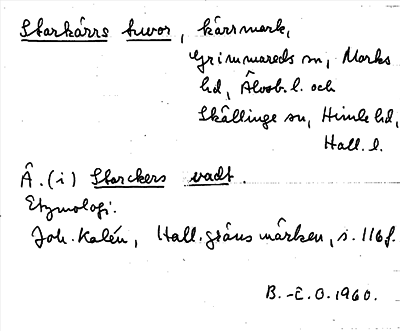 Starkärrs tuvor, kärrmark,
Grimmareds sn, Marks
hd, Älvsb. l. och
Skällinge sn, Himle hd,
Hall. l.
Ä. (i) Starckers vadt.
Etymologi.
Joh. Kalén, Hall. gräns märken, s. 116 f.
B.-E. O. 1960.